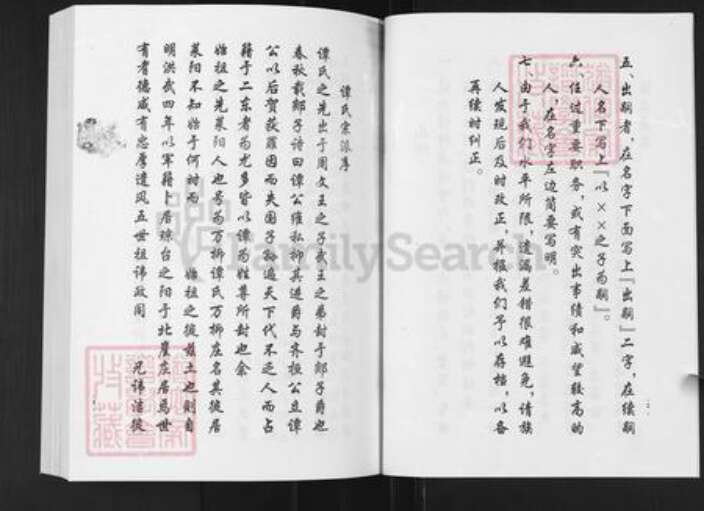 五、出嗣者，在名字下面写上『出嗣』二字，在续嗣
人名下写上『以××之子为嗣』。
六、任过重要职务，或有突出事绩和威望较高的
人，在名字左边简要写明。
七、由于我们水平所限，遗漏差错很难避免，请族
人发现后及时改正，并报我们予以存档，以备
再续时纠正。
谭氏宗派序
谭氏之先出于周文王之子武王之弟封于郯子爵也
春秋载郯子诗曰谭公维私抑其进爵与齐桓公立谭
公以后贺获罪因而失国子孙遍天下代不乏人而占
籍于二东者为尤多皆以谭为姓尊所封也余
始祖之先莱阳人也号为万柳谭氏万柳庄名其徙居
莱阳不知始于何时而 始祖之徙兹土也则自
明洪武四年以军籍卜居琅台之阳于北崖庄居焉世
有耆德咸有忠厚遗风五世祖讳政同 兄讳 徙
FamilySearch